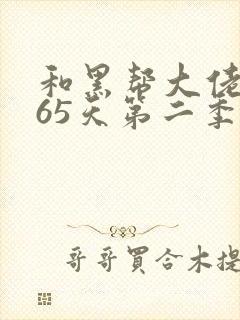 和黑帮大佬
65天第二季
哥哥買合木提